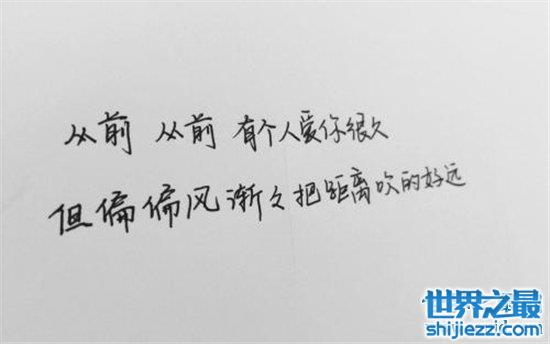 从前 从前 有个人爱你很久
但偏偏风渐々把距离吹的好远
世界之最
shijiezzi.com